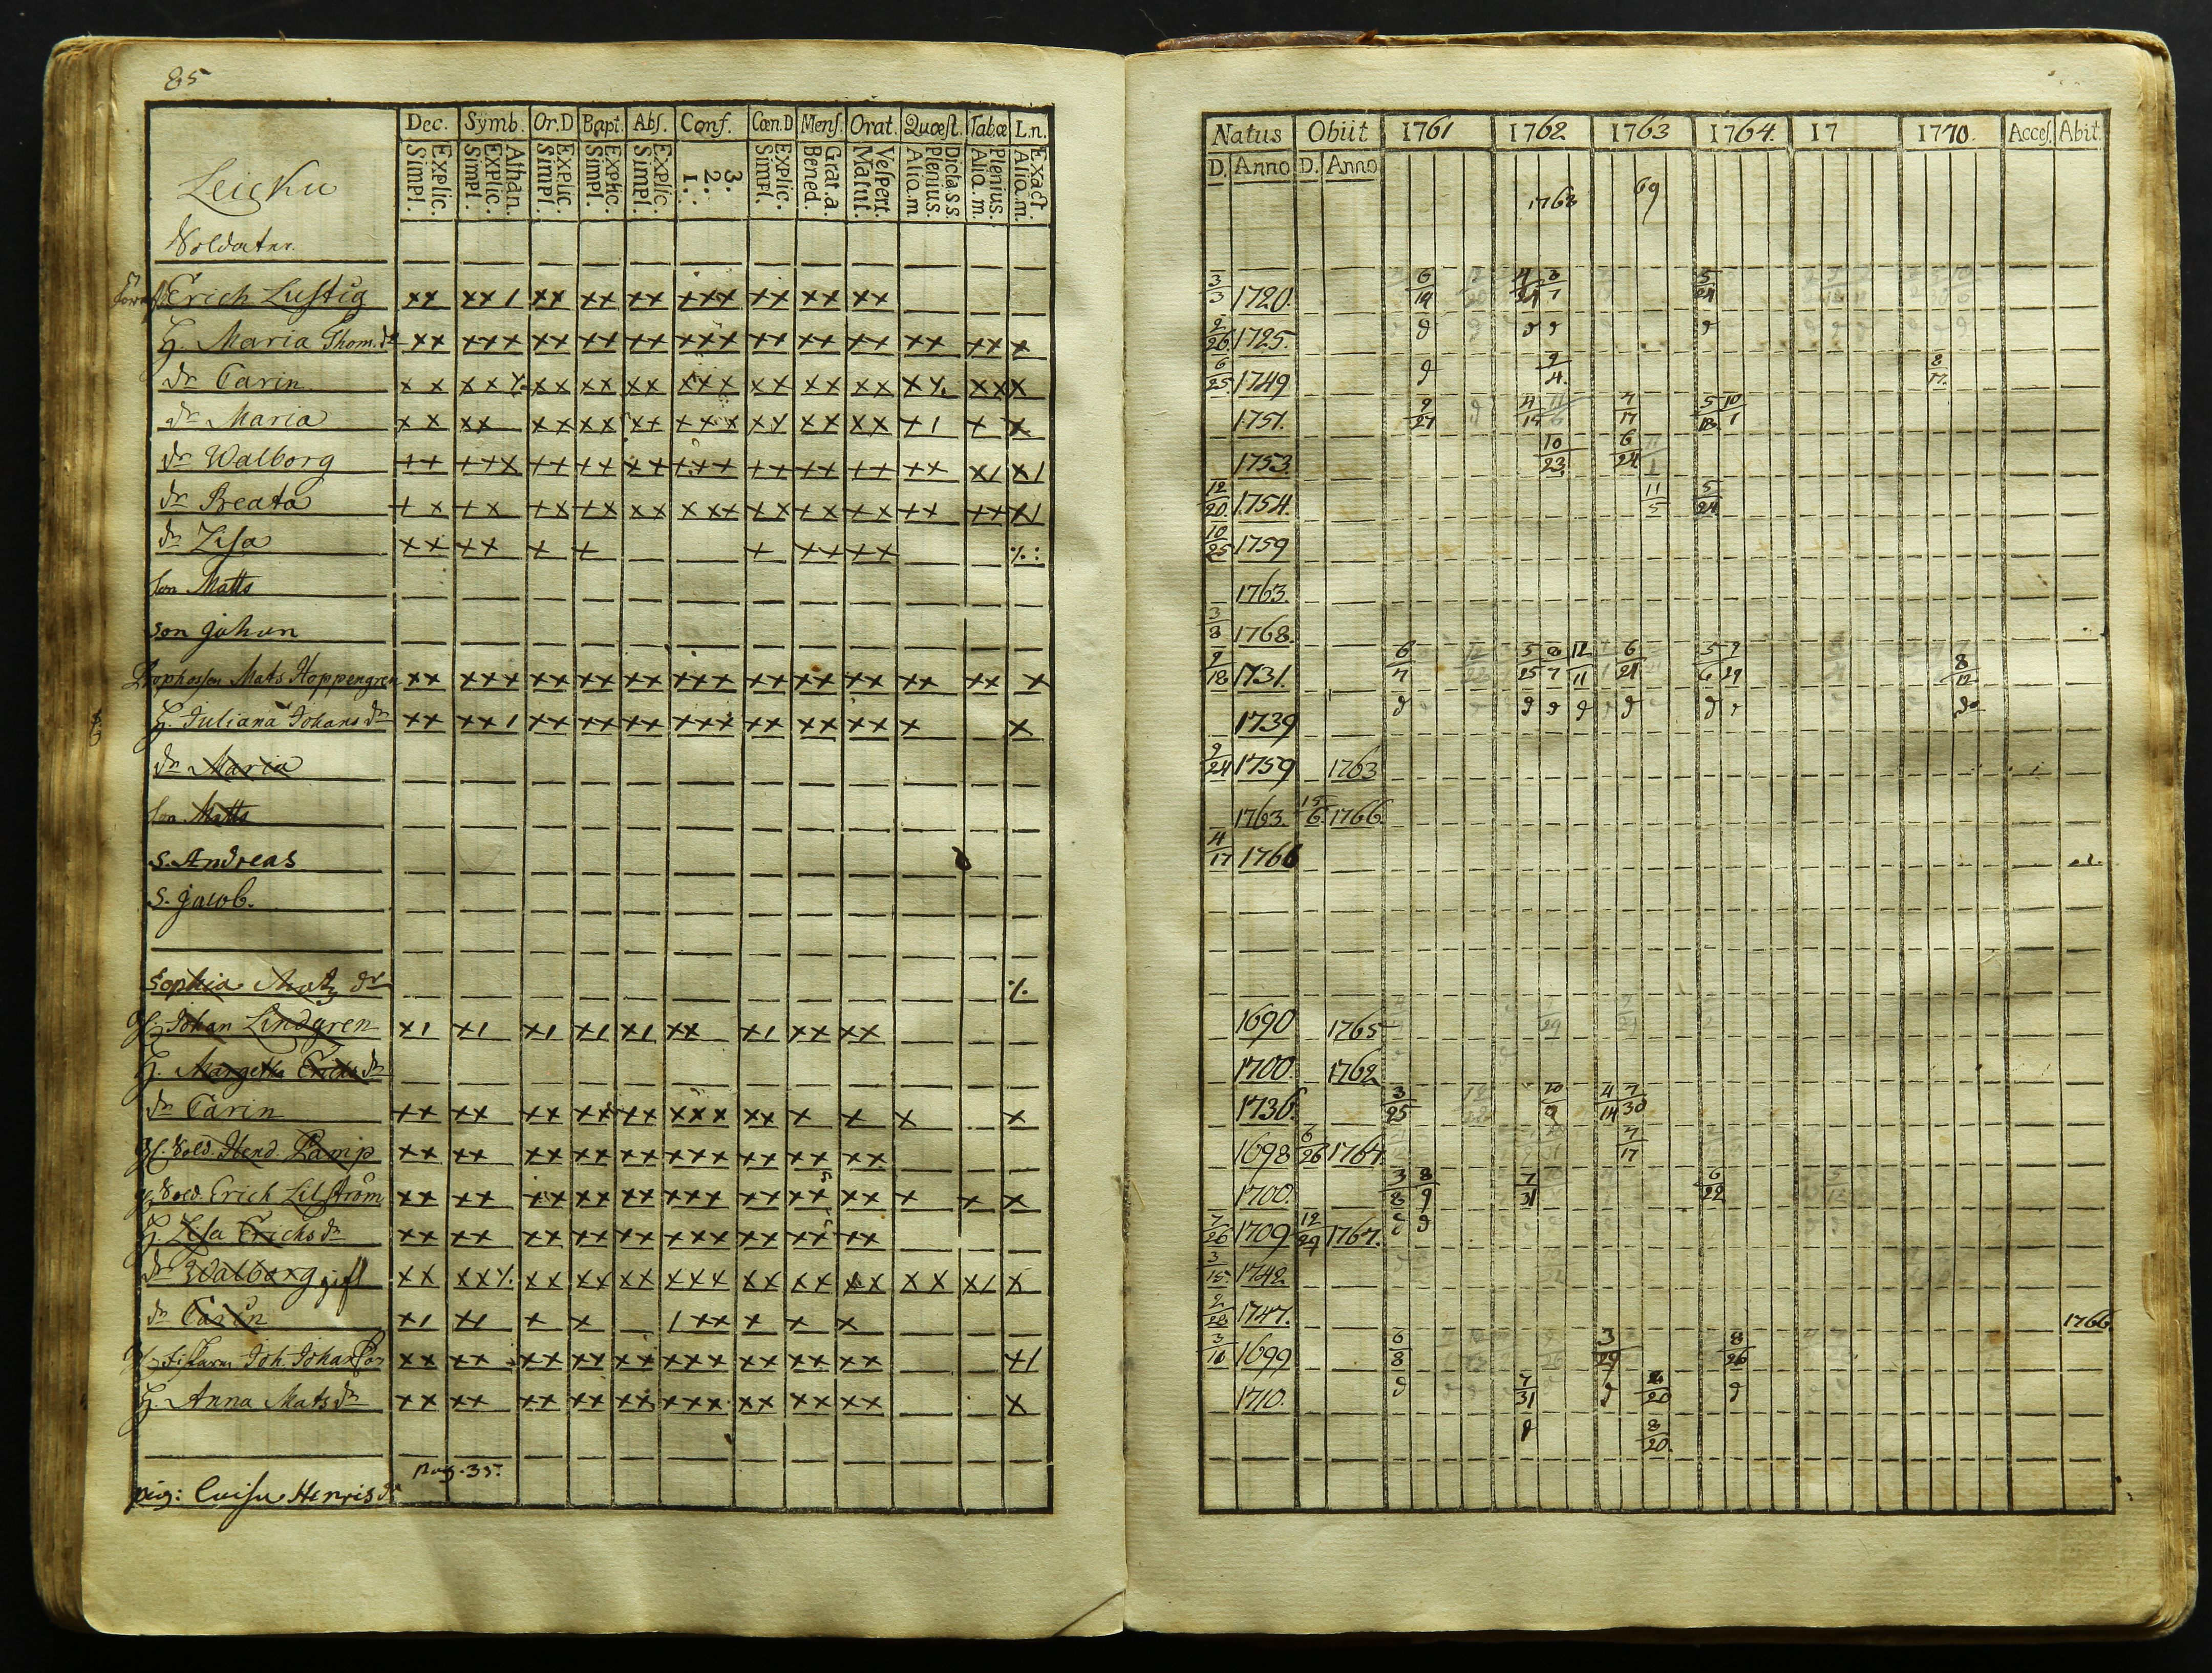 85
Dec. Symb. Or.D Bapt. Abs. Conf. Cœn.D Mens. Orat. Quæst. Tab.œ L.n.
Explic. Simpl. Athan. Explic. Simpl. Explic. Simpl. Explic. Simpl. Explic. Simpl. 3. 2. 1. Explic. Simpl. Grat.a. Bened. Vespert. Matut. Dicta s s. Plenius. Aliq.m Plenius. Aliq.m. Exact. Aliq.m.
Leicku
Soldater
Erich Lustig xx xx 1 xx xx xx xxx xx xx xx
H. Maria Thom. dr xx xxx xx xx xx xxx xx xx xx xx xx x
dr Carin x x xx ٪ xx xx xx xxx xx xx xx x٪ xx x
dr Maria x x xx xx xx xx xxx xx xx xx x1 x x
dr Walborg xx xxx xx xx xx xxx xx xx xx xx x1 x1
dr Beata x x xx xx xx xx xxx xx xx xx xx xx x1
dr Lisa xx xx x x x xx xx ٪:
son Matts
son Johan
Prophossen Mats Hoppengren xx xxx xx xx xx xxx xx xx xx xx xx x
H. Juliana Johans dr xx xx1 xx xx xx xxx xx xx xx x x
dr Maria
son Matts
S. Andreas
S. Jacob.
Sophia Matz dr ٪
Johan Lindgren x1 x1 x1 x1 x1 xx x1 xx xx
H. Margetha Erichs dr
dr Carin xx xx xx xx xx xxx xx x x x x
Sold. Hend. Lamp xx xx xx xx xx xxx xx xx xx
Sold. Erich Lilström xx xx xx xx xx xxx xx xx xx x x x
H. Lisa Erichs dr xx xx xx xx xx xxx xx xx xx
dr Walborg gift xx xx٪ xx xx xx xxx xx xx xx xx x1 x
dr Carin x1 x1 x x 1xx x x x
Joh. Johansson xx xx xx xx xx xxx xx xx xx x1
H. Anna Mats dr xx xx xx xx xx xxx xx xx xx x
pig: Lovisa Henris dr
Natus Obiit 1761 1762 1763 1764. 17 1770. Access. Abit.
D. Anno D. Anno
1768 69
3/3 1720. 6/14 4/24 8/7 5/24
2/26 1725.
6/25 1749 9/4. 8/17.
1751. 9/27 4/15 7/17 5/18 10/1
1753. 10/23. 6/24
12/20. 1754. 11/5 5/24
10/25 1759
1763.
3/8 1768.
9/18 1731. 6/7 5/25 8/7 12/11 6/21 5/6 9/29 8/12
1739
9/24 1759 1763
1763. 15/6. 1766
4/17 1766
1690 1765
1700. 1762
1736. 3/25 10/9 4/14 7/30
1698 6/26 1764 7/17
1700. 3/8 8/9 7/31 6/22
7/26 1709 12/29 1767.
3/15. 1742
2/28 1747. 1766
3/10 1699 6/8 3/29 8/26
1710. 7/31 8/20
8/20.